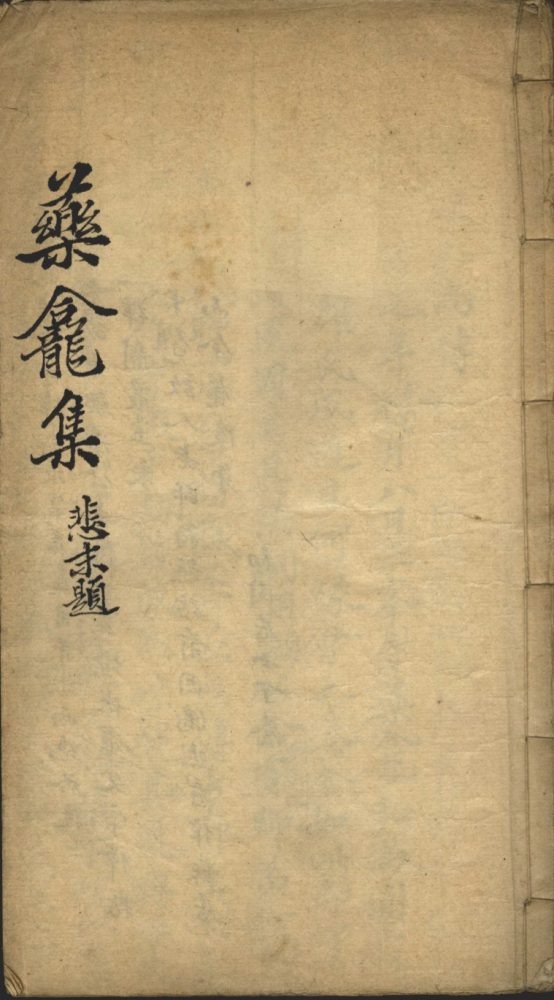 藥龕集
悲末題